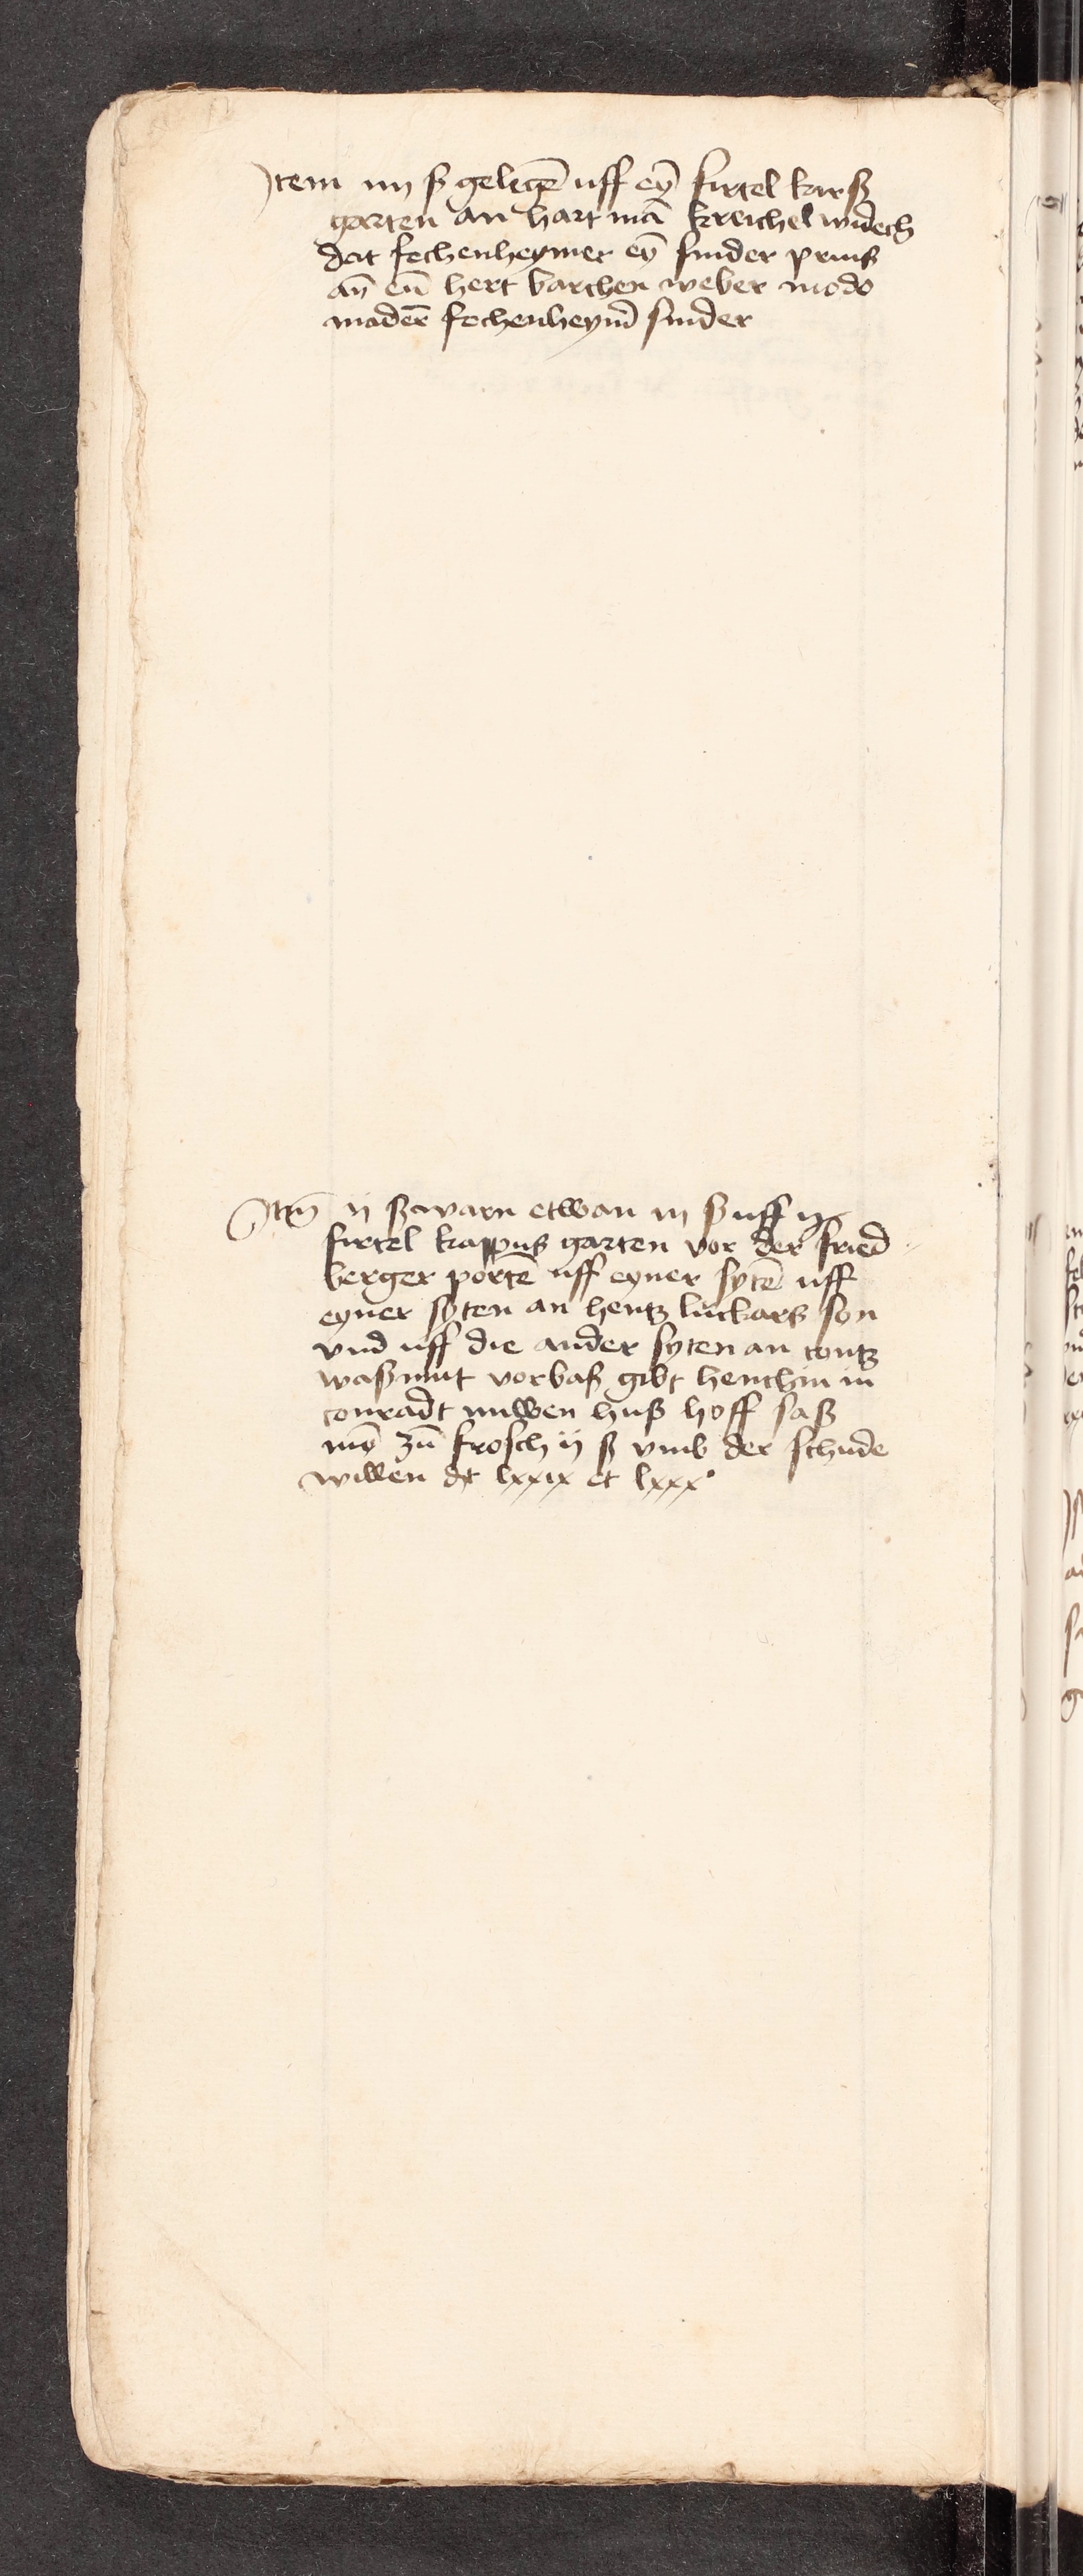 Item iiij ß gelegē uff eȳ firtel karß
garten an hartmā kreichel
dat fechenheymer eȳ sinder prius
an̄ hert barchen weber modo
fechenheym̄ sinder
Itm̄ ij ß warn etwan iij ß uff ij
firtel kappus garten vor der fried
berger portē uff eyner sytē uff
eyner syten an hentz luckarß son
vnd uff die ander syten an contz
waßmut vorbaß gibt henchin in
conradt nuwen huß hoff saß
mō zū frosch ij ß vmb der schude
willen dt lxxix et lxxx°